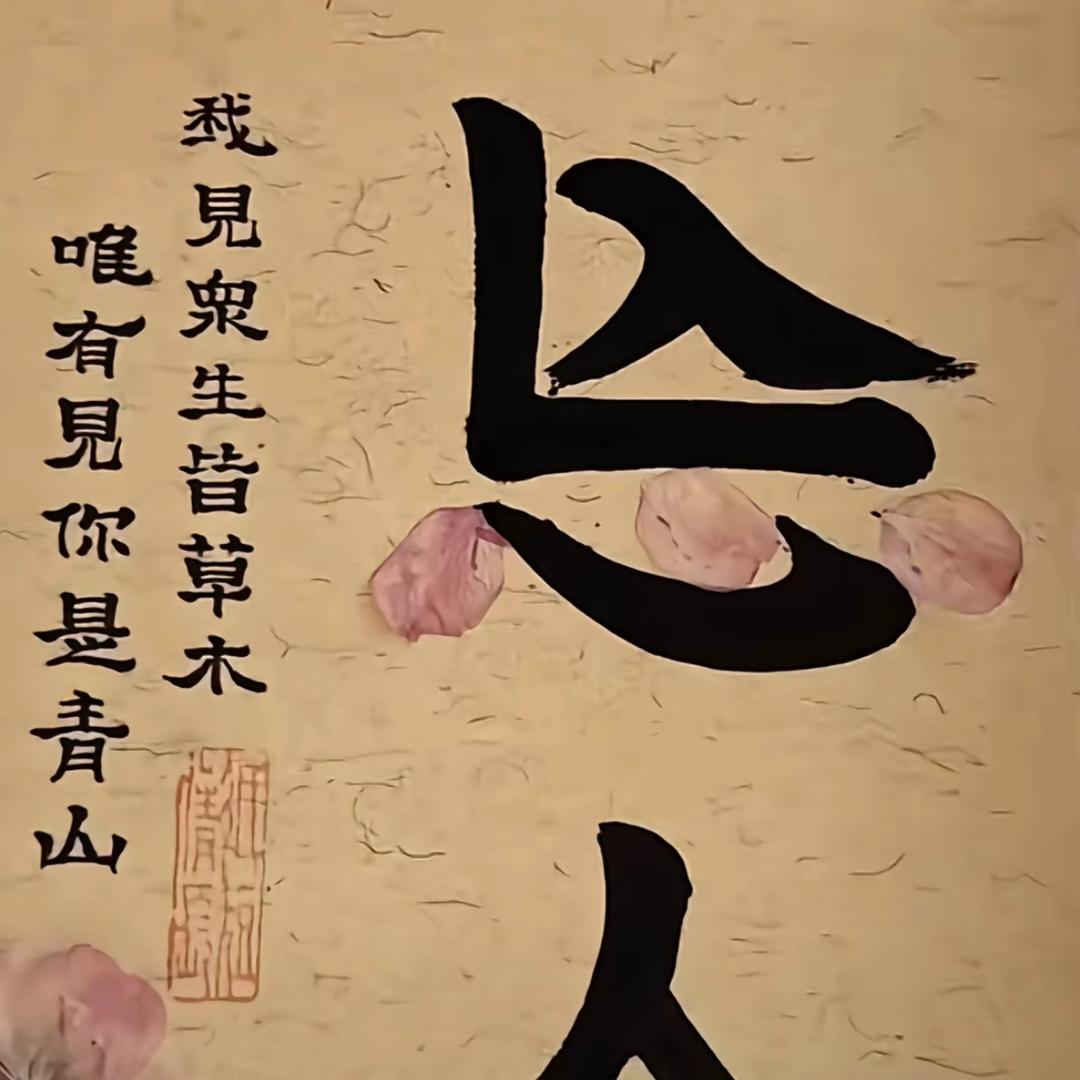 忘
我見衆生皆草木
唯有見你是青山